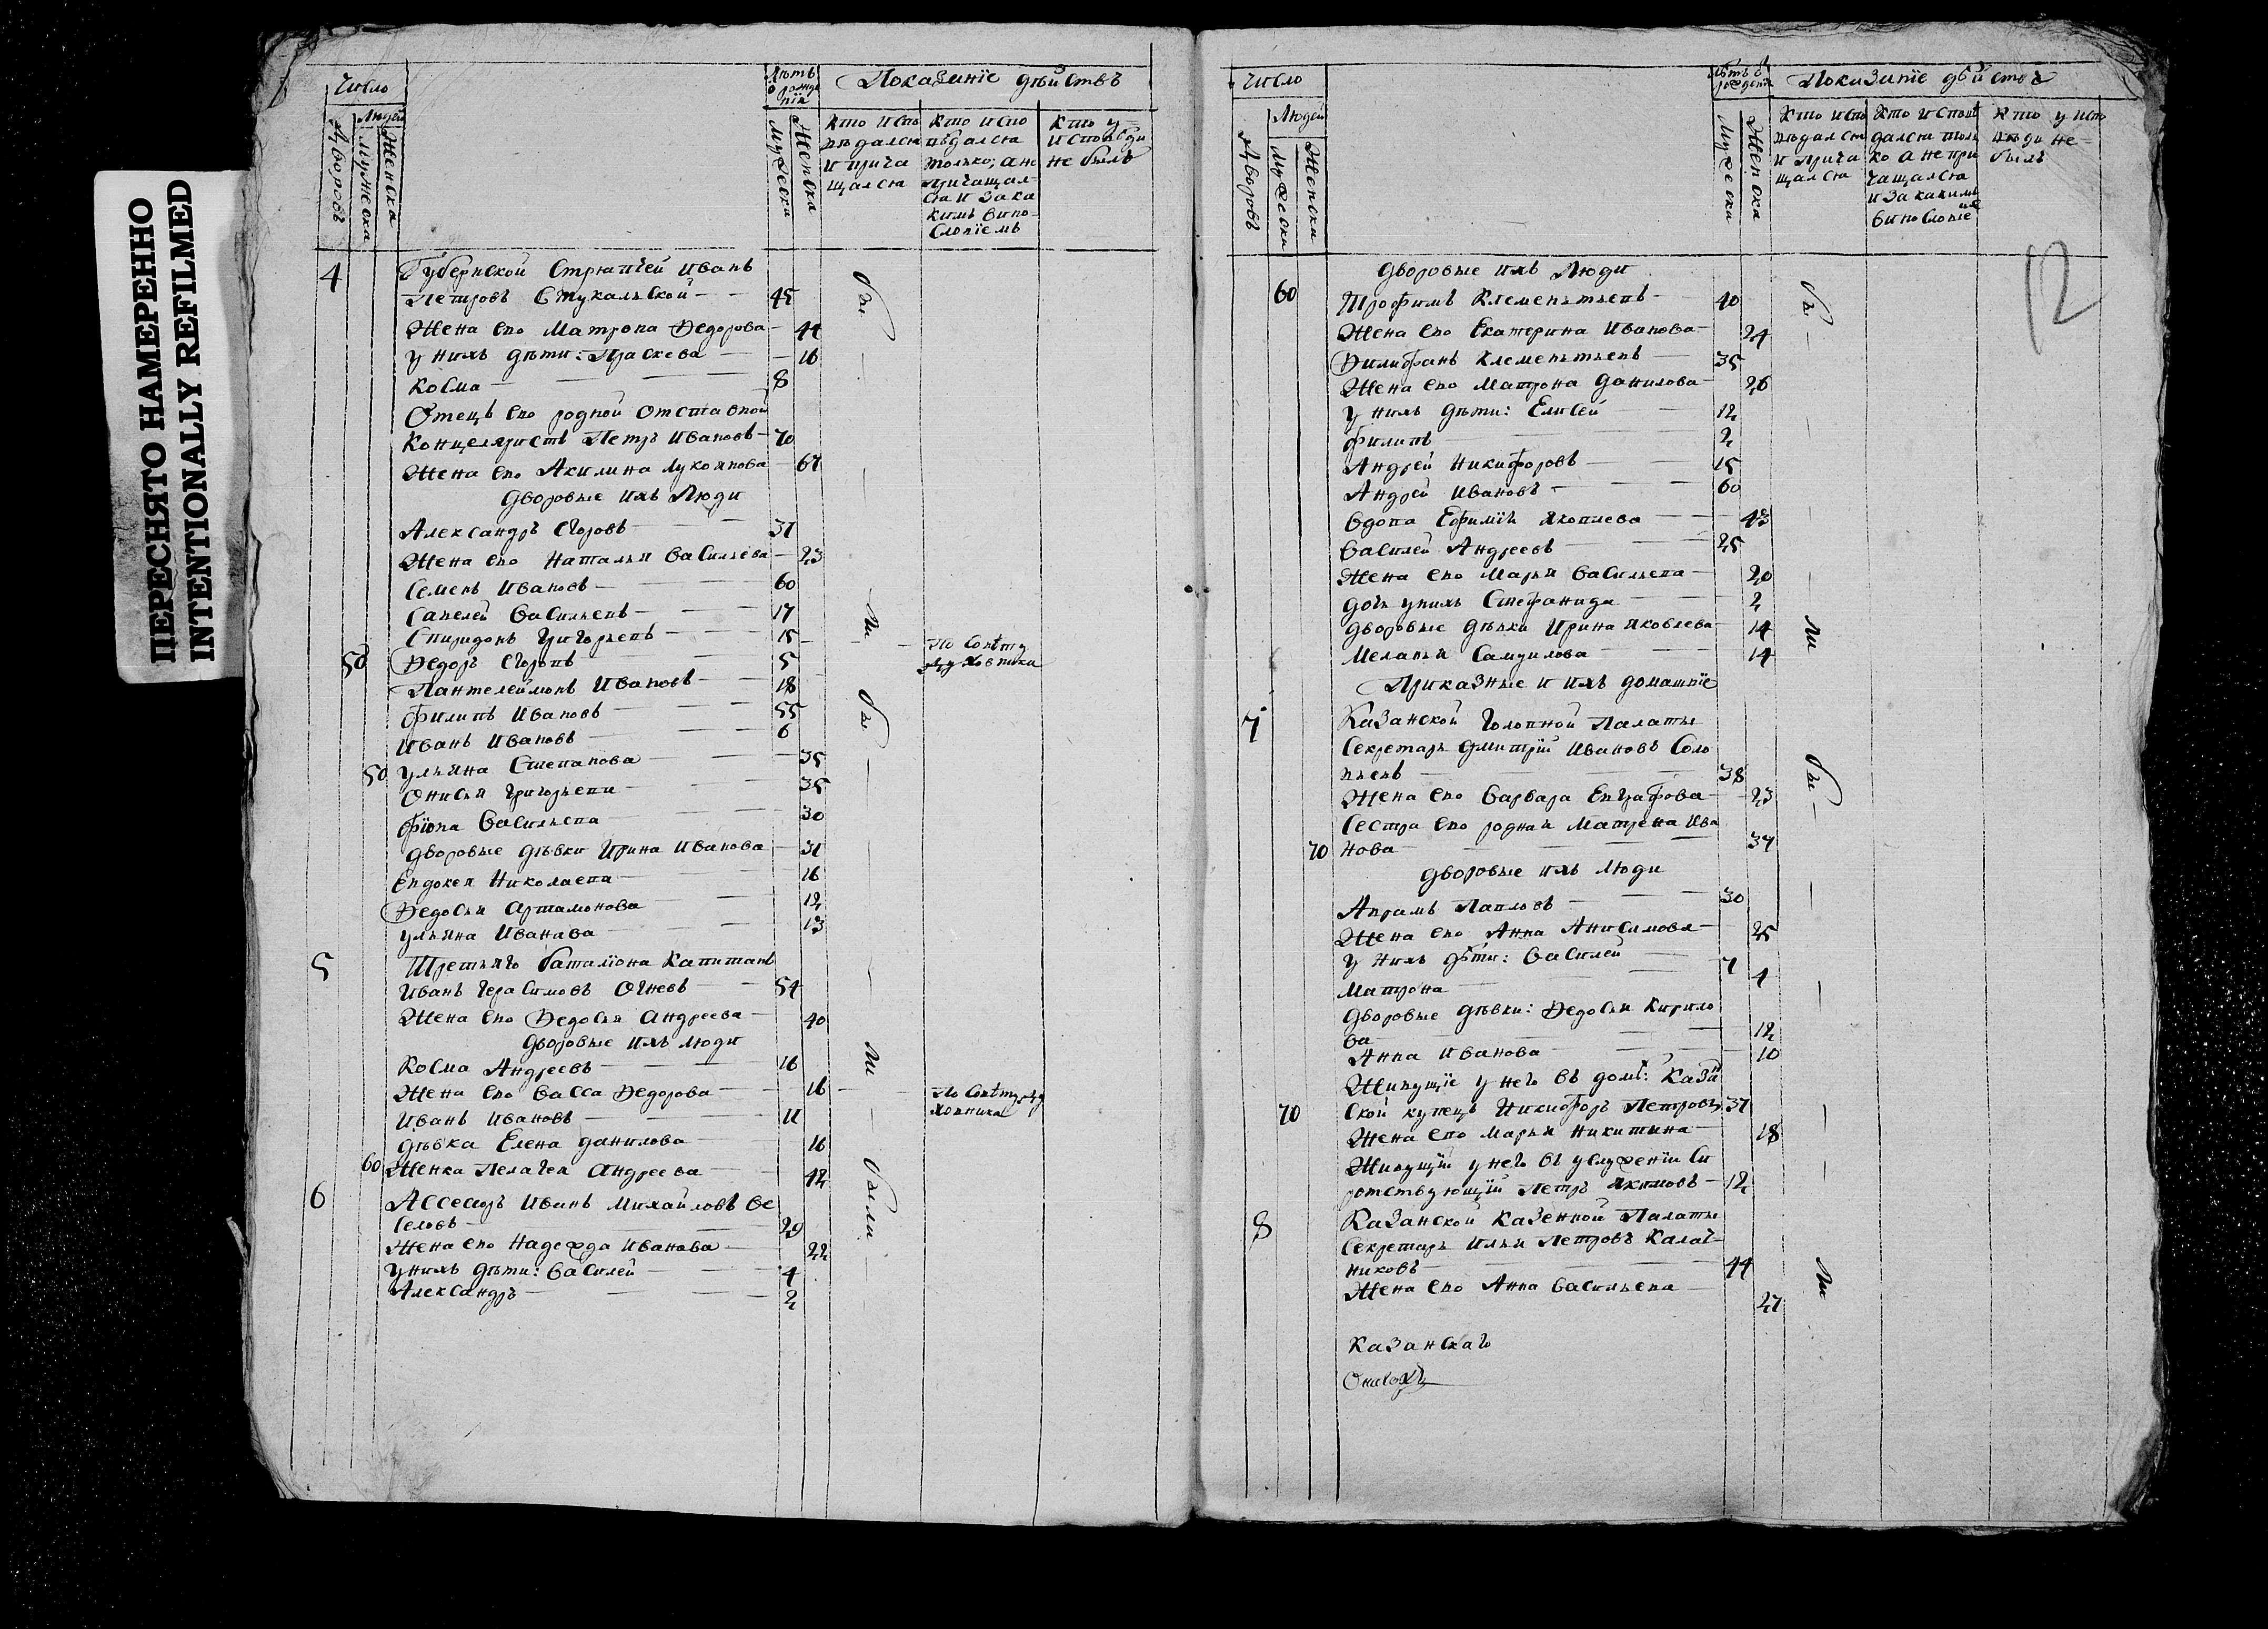 ПЕРЕСНЯТО НАМЕРЕННО
INTENTIONALLY REFILMED
Число
Людей
Дворовъ
Мужеска
Женска
Лѣтъ
рожде
нія
Мужеска
Женска
Показаніе дѣйствъ
Кто испо
вѣдался
и прича
щался
Кто испо
вѣдался
только, а не
причащал-
ся и за ка
кимъ вино-
словіемъ
Кто у
исповѣди
не былъ
4 Губернской Стряпчей Иванъ
Петровъ Стукальской 45
Жена ево Матрона Ѳедорова
У нихъ дѣти: Праскева 16
Косма 8
Отецъ ево родной отставной
Концеляристъ Петръ Ивановъ 70
Жена ево Акилина Лукоянова
Дворовые ихъ Люди
Александръ Егоровъ
Жена ево Наталья Васильева 23
Семенъ Ивановъ 60
Савелей Васильевъ 17
Спиридонъ Григорьевъ 15
Ѳедоръ Егоровъ 5
по совѣту
духовника
Пантелеймонъ Ивановъ 18
Филипъ Ивановъ 55
Иванъ Ивановъ 6
50 Ульяна Степанова 35
Онисья Григорьева 35
Васильева 30
Дворовые дѣвки Ирина Иванова
Евдокея Николаева 16
Ѳедосья Артамонова 12
Ульяна Иванова 13
5 Третьяго баталіона Капитанъ
Иванъ Герасимовъ Огневъ 54
Жена ево Ѳедосья Андреева 40
Дворовые ихъ люди
Косма Андреевъ 16
Жена ево Васса Ѳедорова 16
по совѣту ду
ховника
Иванъ Ивановъ 11
Дѣвка Елена Данилова 16
60 Женка Пелагея Андреева 42
6 Ассесоръ Иванъ Михайловъ Ве
селовъ 29
Жена ево Надежда Иванова 22
У нихъ дѣти: Василей 4
Александръ 2
Бы
ли
Бы
ли
Были
Число
Людей
Дворовъ
Мужеска
Женска
Лѣтъ ѿ
рожденія
Мужеска
Женска
Показаніе дѣйствъ
Кто испо
вѣдался
и прича
щался
Кто исповѣ
дался толь
ко а не при
чащался
и за какимъ
винословіе
Кто у испо
вѣди не
былъ
12
Дворовые ихъ Люди
60 Трофимъ Клементьевъ 40
Жена ево Екатерина Иванова 24
Клементьевъ 35
Жена ево Матрона Данилова 26
У нихъ дѣти: Елисей 12
Филипъ 2
Андрей Никифоровъ 15
Андрей Ивановъ 60
Вдова Ефимія Яковлева 43
Василей Андреевъ 25
Жена ево Марья Васильева 20
Дочь у нихъ Стефанида 2
Дворовые дѣвки Ирина Яковлева 14
Меланья Самуилова 14
Приказные и ихъ домашніе
7 Казанской Головной Палаты
Секретарь Дмитрій Ивановъ Соло
вьевъ 38
Жена ево Варвара Евграфова 23
Сестра ево родная Матрена Ива
70 нова 37
Дворовые ихъ люди
Аврамъ Павловъ 30
Жена ево Анна Анисимова 25
У нихъ дѣти: Василей 7
Матрона 4
Дворовые дѣвки: Ѳедосья Кирило
ва 12
Анна Иванова 10
Живущіе у него въ домѣ: Казан
70 ской купецъ Никифоръ Петровъ 37
Жена ево Марья Никитина 18
Живущій у него въ услуженіи Си
ротствующій Петръ Якимовъ 12
8 Казанской Казенной Палаты
Секретарь Илья Петровъ Калаш-
никовъ 44
Жена ево Анна Васильева 27
Бы
ли
Бы
ли
Казанскаго